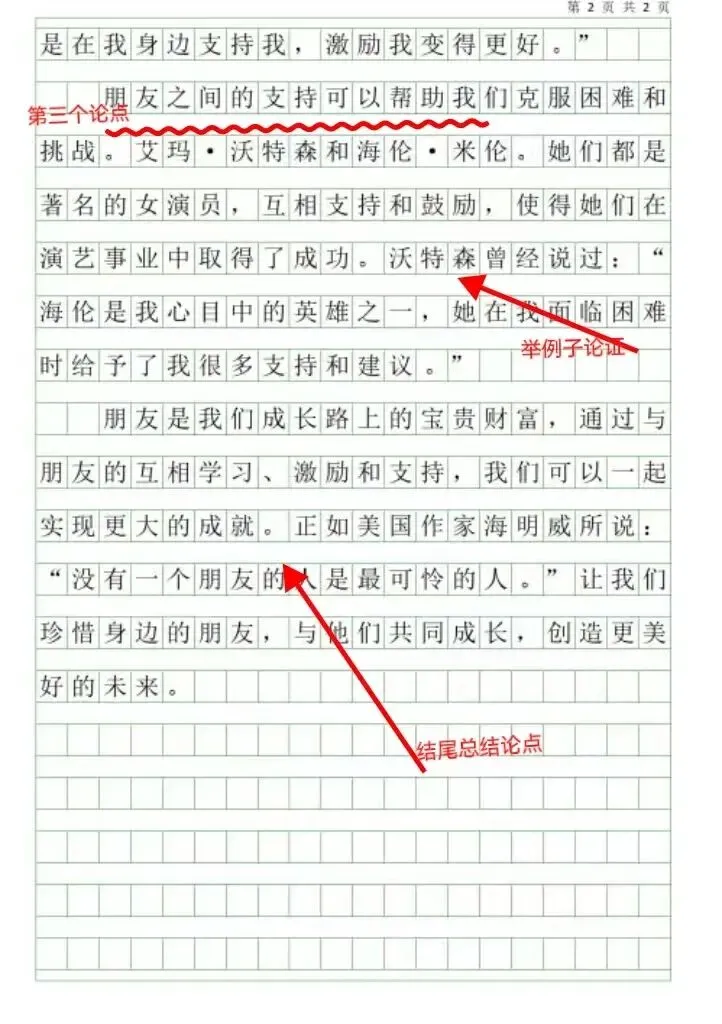 第 2 页 共 2 页
是在我身边支持我，激励我变得更好。”
朋友之间的支持可以帮助我们克服困难和
第三个论点
挑战。艾玛·沃特森和海伦·米伦。她们都是
著名的女演员，互相支持和鼓励，使得她们在
演艺事业中取得了成功。沃特森曾经说过：“
海伦是我心目中的英雄之一，她在我面临困难
举例子论证
时给予了我很多支持和建议。”
朋友是我们成长路上的宝贵财富，通过与
朋友的互相学习、激励和支持，我们可以一起
实现更大的成就。正如美国作家海明威所说：
“没有一个朋友的人是最可怜的人。”让我们
珍惜身边的朋友，与他们共同成长，创造更美
好的未来。
结尾总结论点